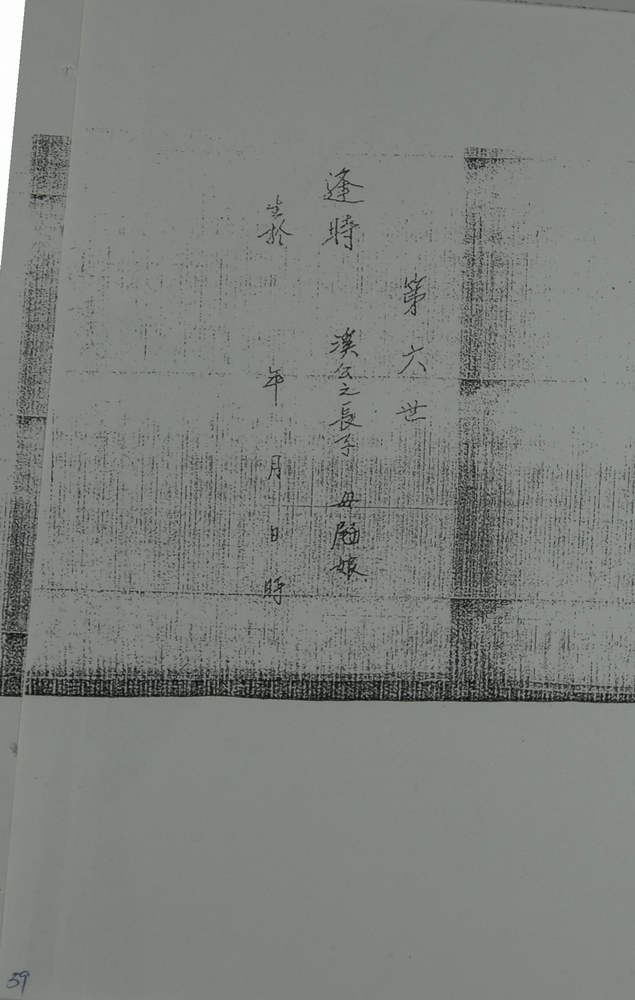 第六世
逢時 漢公之長子 母 娘
生於 年 月 日 時
59